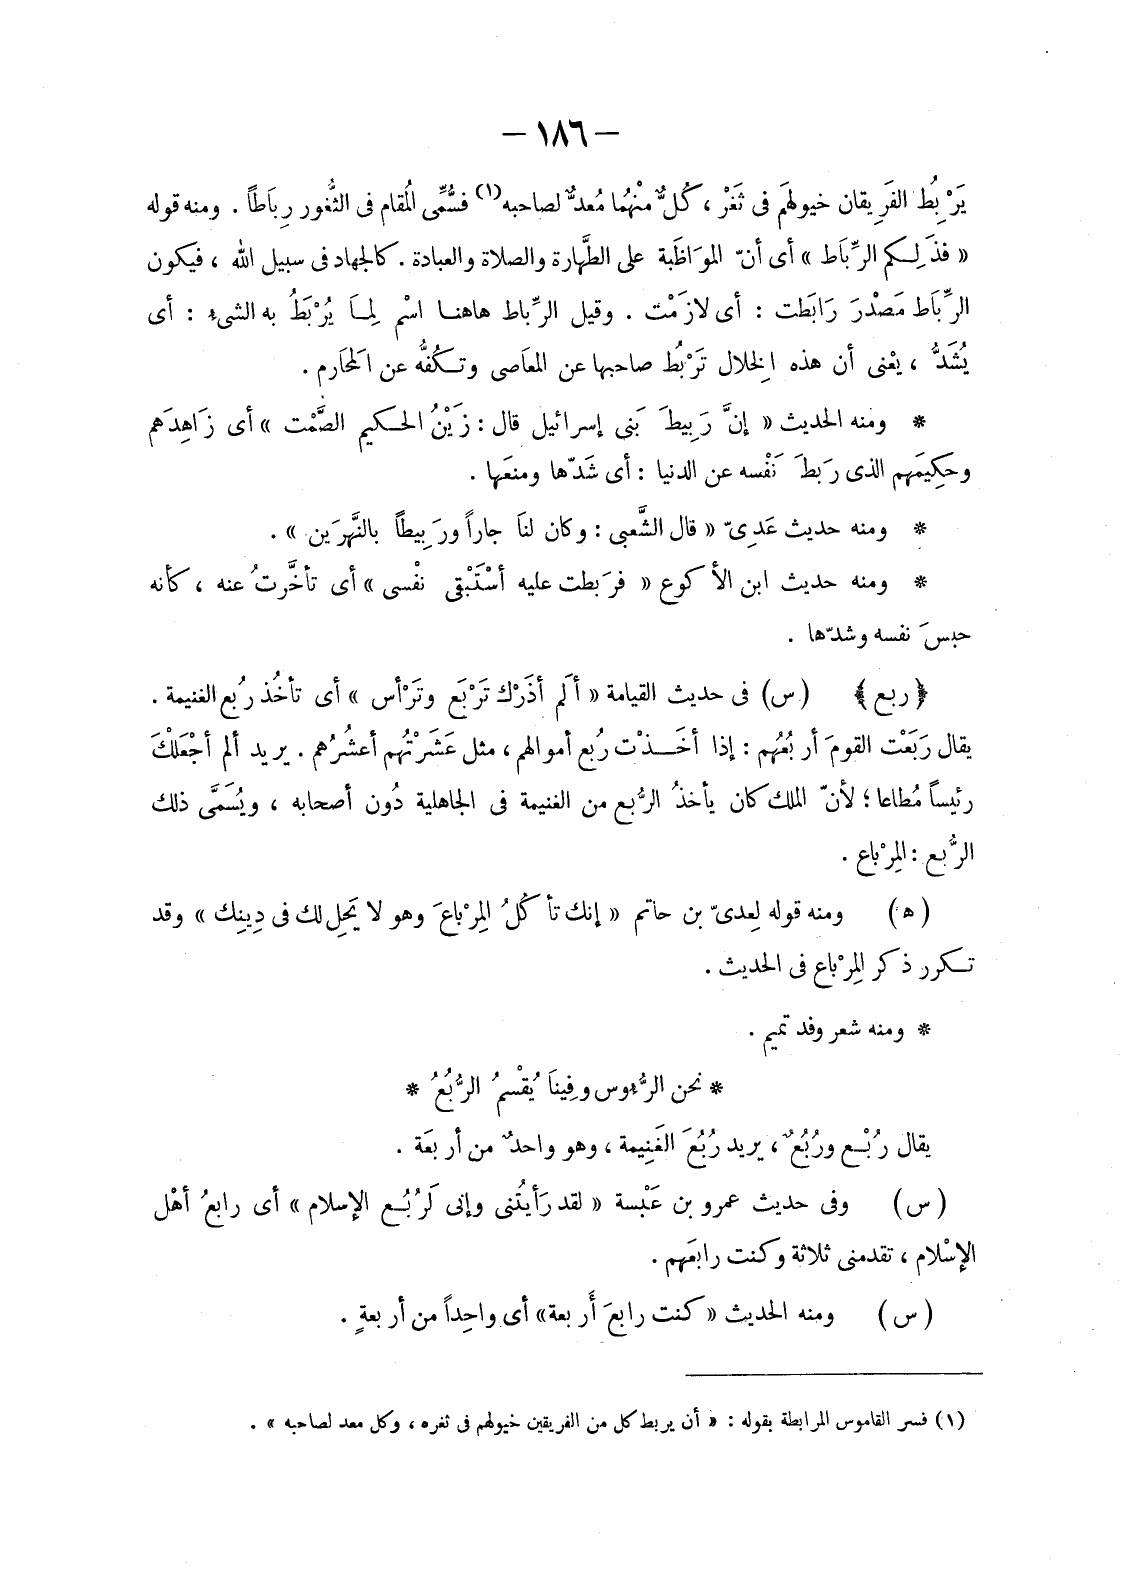 — ١٨٦ —
يَرْبِطُ الفَرِيقان خيولهَم فى ثَغْر ، كُلٌّ منْهُما مُعدٌّ لصاحبه(١) فسُمِّى المُقام فى الثُّغور رِبَاطاً . ومنه قوله
« فذَلِـكم الرِّبَاط » أى أنّ الموَاظَبة على الطَّهارة والصلاة والعبادة . كالجهاد فى سبيل الله ، فيكون
الرِّبَاط مَصْدرَ رَابَطت : أى لازَمْت . وقيل الرِّباط هاهنـا اسْم لِمـَا يُرْبَطُ به الشىء : أى
يُشَدُّ ، يعْنى أن هذه الِخلال تَرْبُط صاحبها عن المَعاَصى وتـكُفُّه عن المَحَارم .
* ومنه الحديث « إنَّ رَبِيطَ بَنى إسرائيل قال : زَيْنُ الحـكيم الصَّمْت » أى زَاهِدَهم
وحَكِيمَهم الذى رَبطَ نَفْسه عن الدنيا : أى شَدّها ومنعَها .
* ومنه حديث عَدِىّ « قال الشَّعبى : وكان لنَا جاراً ورَبِيطاً بالنَّهرَين » .
* ومنه حديث ابن الأكوع « فرَبطت عليه أسْتَبْقى نفْسى » أى تأخَّرتُ عنه ، كأنه
حبسَ نفسه وشدّها .
﴿ ربع ﴾ (س) فى حديث القيامة « ألَم أذَرْك تَرْبَع وتَرْأس » أى تأخُذ رُبع الغنيمة .
يقال رَبَعْت القومَ أربُعُهم : إذا أخَـذْت رُبع أموالهم ، مثل عَشَرْتُهم أعشُرُهم . يريد ألم أجْعَلْكَ
رئيساً مُطاعا ؛ لأنّ الملك كان يأخذُ الرُّبع من الغنيمة فى الجاهلية دُون أصحابه ، ويُسَمَّى ذلك
الرُّبع : المِرْباع .
(ه) ومنه قوله لِعدىّ بن حاتم « إنك تأكُلُ المِرْباعَ وهو لا يَحِل لك فى دِينِك » وقد
تـكرر ذكر المِرْباع فى الحديث .
* ومنه شعر وفد تميم .
* نحن الرُّءوس وفِيناَ يُقْسمُ الرُّبُعُ *
يقال رُبْـع ورُبُعٌ ، يريد رُبُعَ الغَنِيمة ، وهو واحدٌ من أربعَة .
(س) وفى حديث عمرو بن عَبْسة « لقد رَأيتُنى وإنى لَرُبُـع الإسلام » أى رابعُ أهْل
الإسْلام ، تقدمنى ثلاثة وكنت رابعَهم .
(س) ومنه الحديث « كنت رابعَ أَربعة » أى واحِداً من أربعةٍ .
(١) فسر القاموس المرابطة بقوله : « أن يربط كل من الفريقين خيولهم فى ثغره ، وكل معد لصاحبه » .